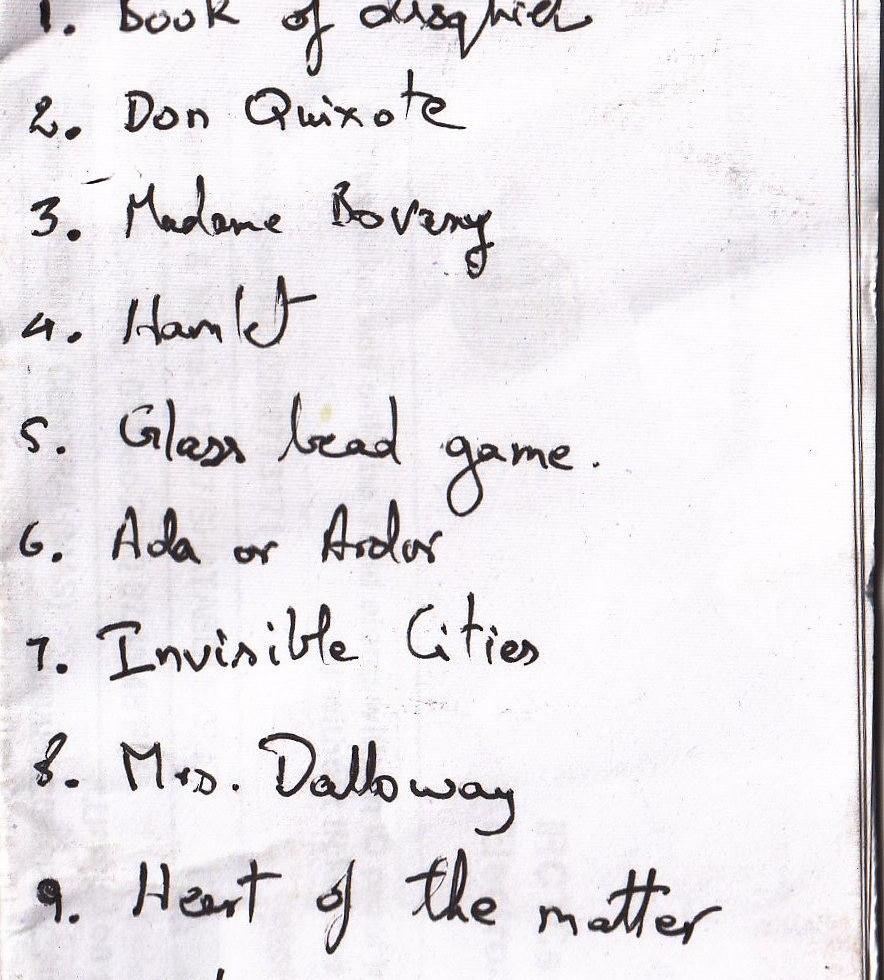 1. Book of disquiet
2. Don Quixote
3. Madame Bovary
4. Hamlet
5. Glass bead game.
6. Ada or Ardor
7. Invisible Cities
8. Mrs. Dalloway
9. Heart of the matter